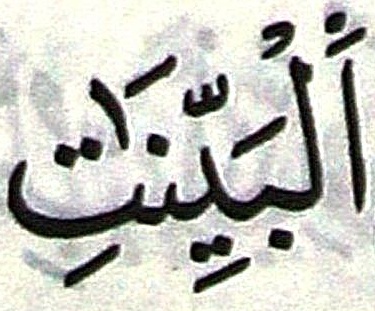 أَلْبَيِّنَٰتِ